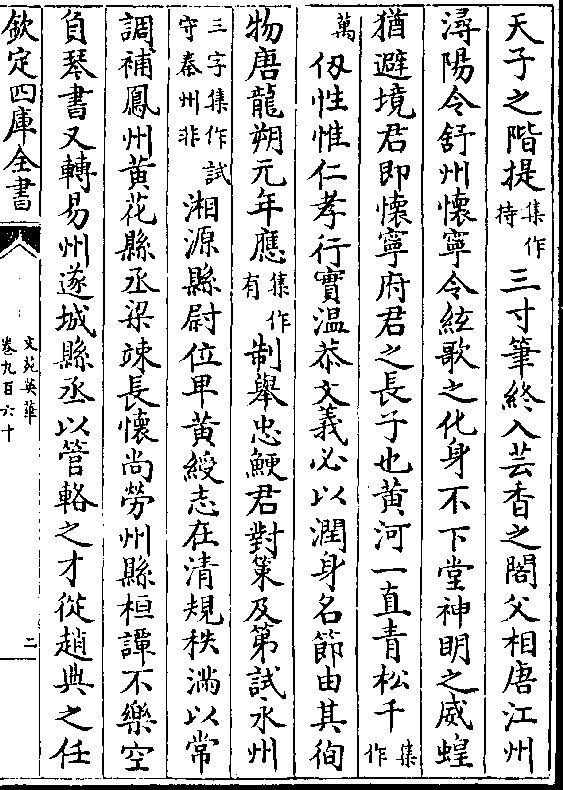 天子之階提集作持三寸筆終入芸香之閣父相唐江州
潯陽令舒州懷寧令絃歌之化身不下堂神明之威蝗
猶避境君即懷寧府君之長子也黄河一直青松千集作
萬仭性惟仁孝行實温恭文義必以潤身名節由其徇
物唐龍朔元年應集作有制舉忠鯁君對策及第試永州
三字集作試守秦州非湘源縣尉位卑黄綬志在清規秩滿以常
調補鳳州黄花縣丞梁竦長懷尚勞州縣桓譚不樂空
負琴書又轉易州遂城縣丞以管輅之才從趙典之任
欽定四庫全書
文苑英華
卷九百六十
二